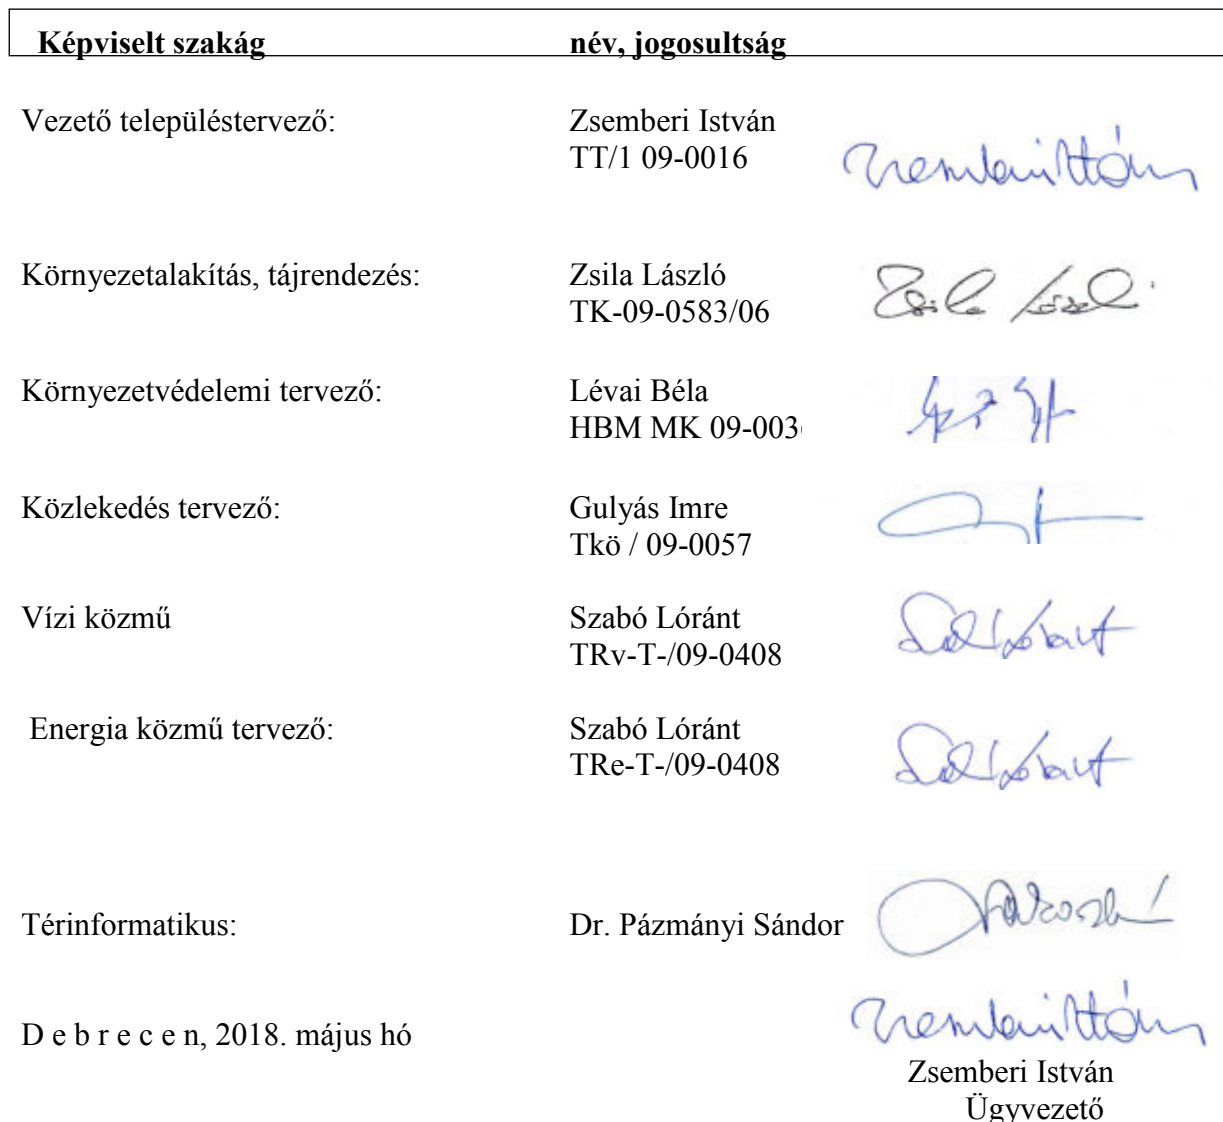 Képviselt szakág név, jogosultság
Vezető településtervező: Zsemberi István
TT/1 09-0016
Környezetalakítás, tájrendezés: Zsila László
TK-09-0583/06
Környezetvédelmi tervező: Lévai Béla
HBM MK 09-003
Közlekedés tervező: Gulyás Imre
Tkö / 09-0057
Vízi közmű Szabó Lóránt
TRv-T-/09-0408
Energia közmű tervező: Szabó Lóránt
TRe-T-/09-0408
Térinformatikus: Dr. Pázmányi Sándor
D e b r e c e n, 2018. május hó
Zsemberi István
Ügyvezető